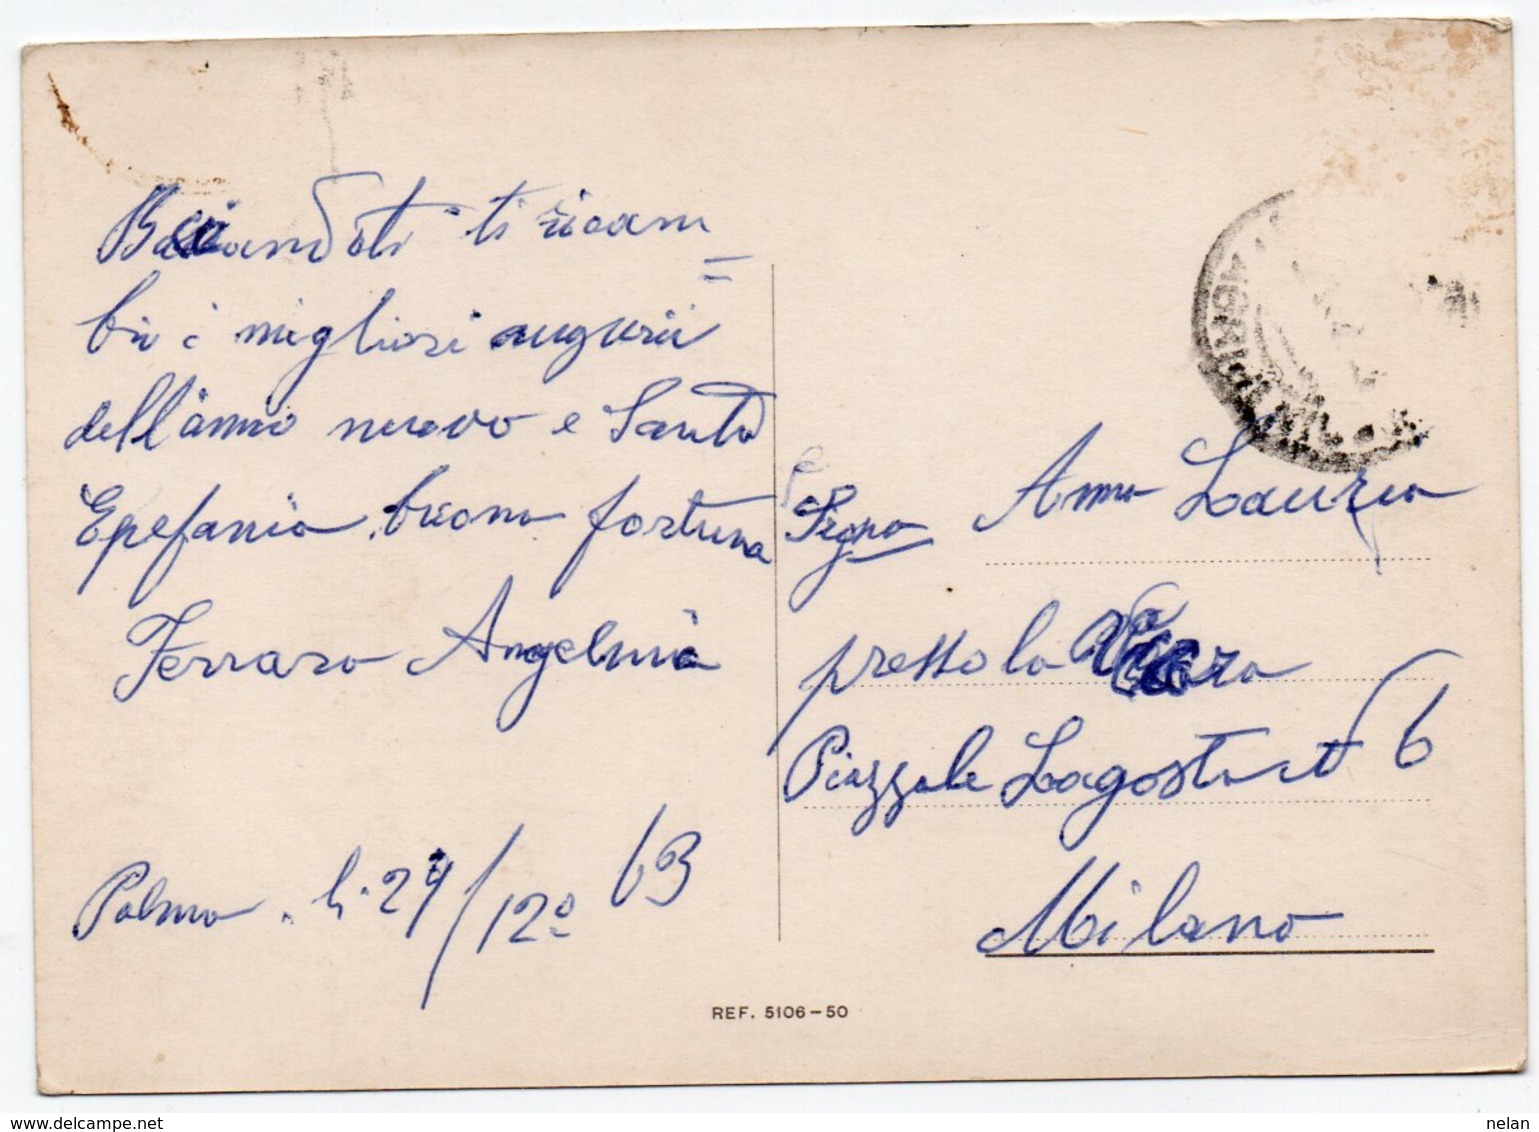 Baciandoti ti ricam=
bio i migliori auguri
dell'anno nuovo e Santa
Epefania, buona fortuna
Ferraro Angelina
Palma. li 29/12º 63
Sigra Anna Lauria
presso la
Piazzale Lagosta nº 6
Milano
REF. 5106-50
delcampe.net
nelan